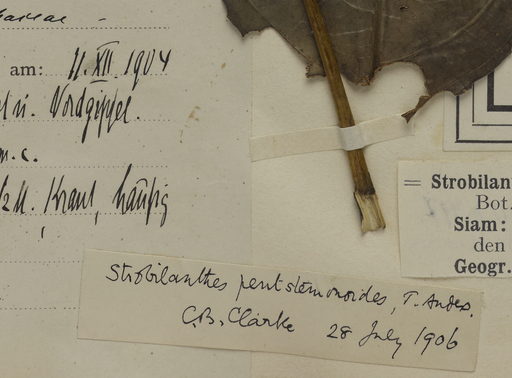 am: 11. XII 1904
Nordgipfel.
m. c.
Kraut, häufig
= Strobilan
Bot.
Siam:
den
Geogr.
Strobilanthes pentstemonoides, T. Anders.
C.B. Clarke 28 July 1906